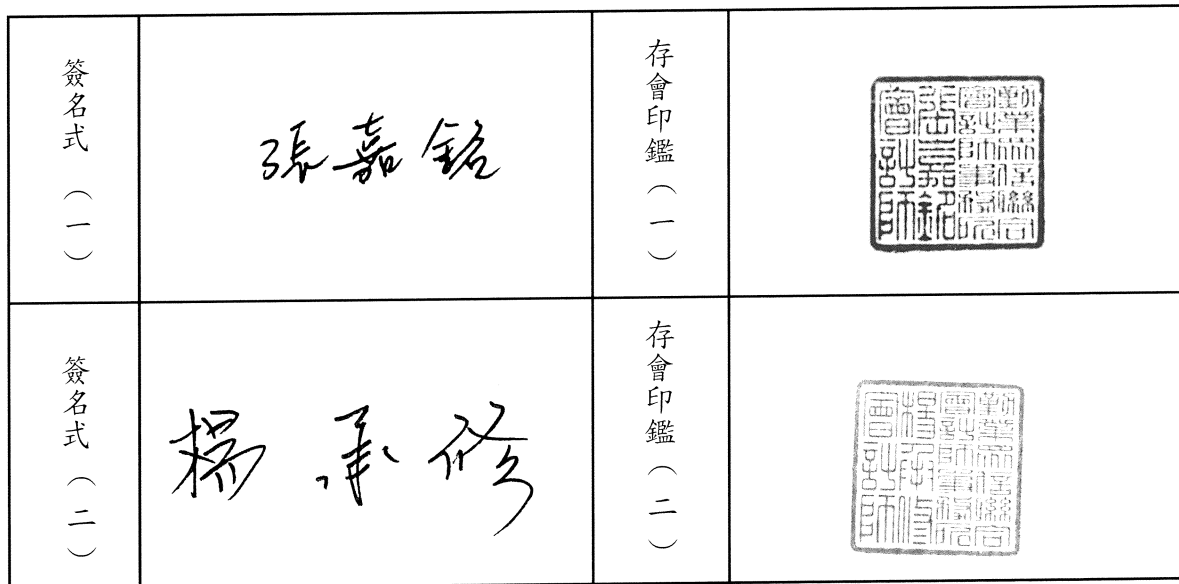 簽名式（一）
張嘉銘
存會印鑑（一）
勤業眾信聯合
會計師事務所
張嘉銘
會計師
簽名式（二）
楊承修
存會印鑑（二）
勤業眾信聯合
會計師事務所
楊承修
會計師